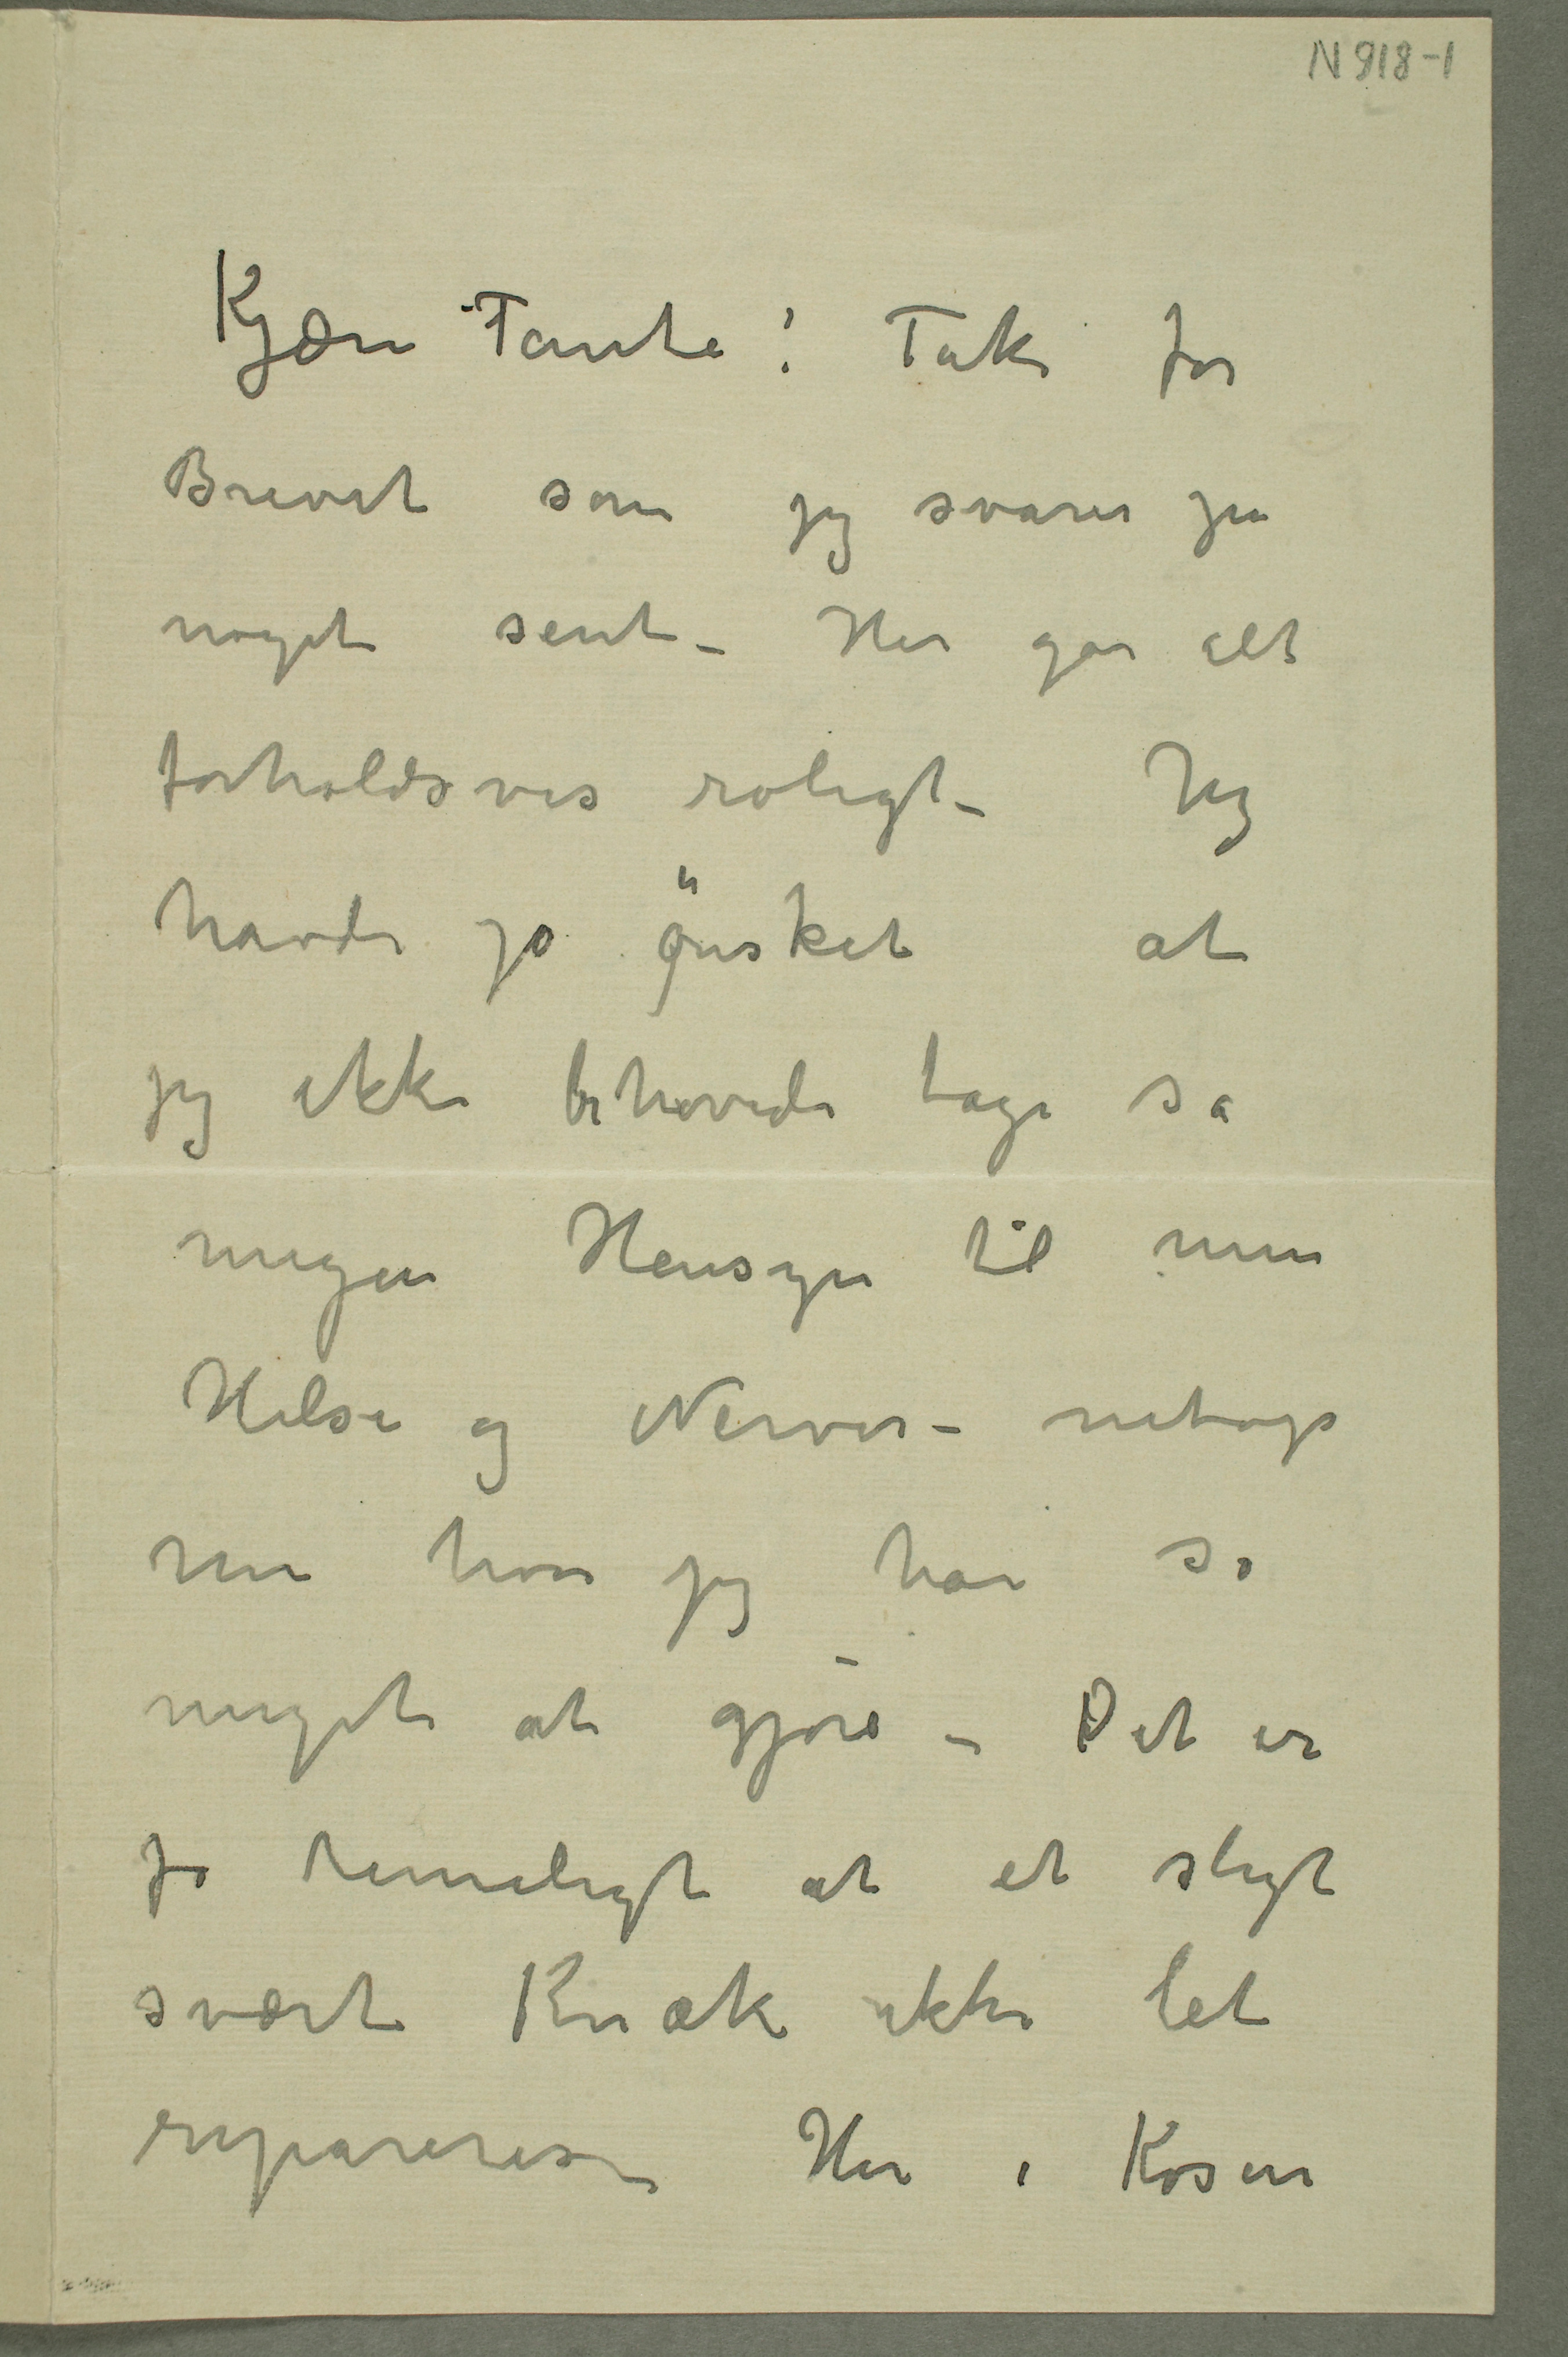 N 918-1
Kjære Tante! Tak for
Brevet som jeg svarer på
noget sent – Her går alt
forholdsvis roligt – Jeg
havde jo ønsket at
jeg ikke behøvede tage så
megen Hensyn til min
Helse og Nerver – netop
nu hvor jeg har så
meget at gjøre – Det er
jo rimeligt at et sligt
svært Knæk ikke let
repareres – Her i Kösen